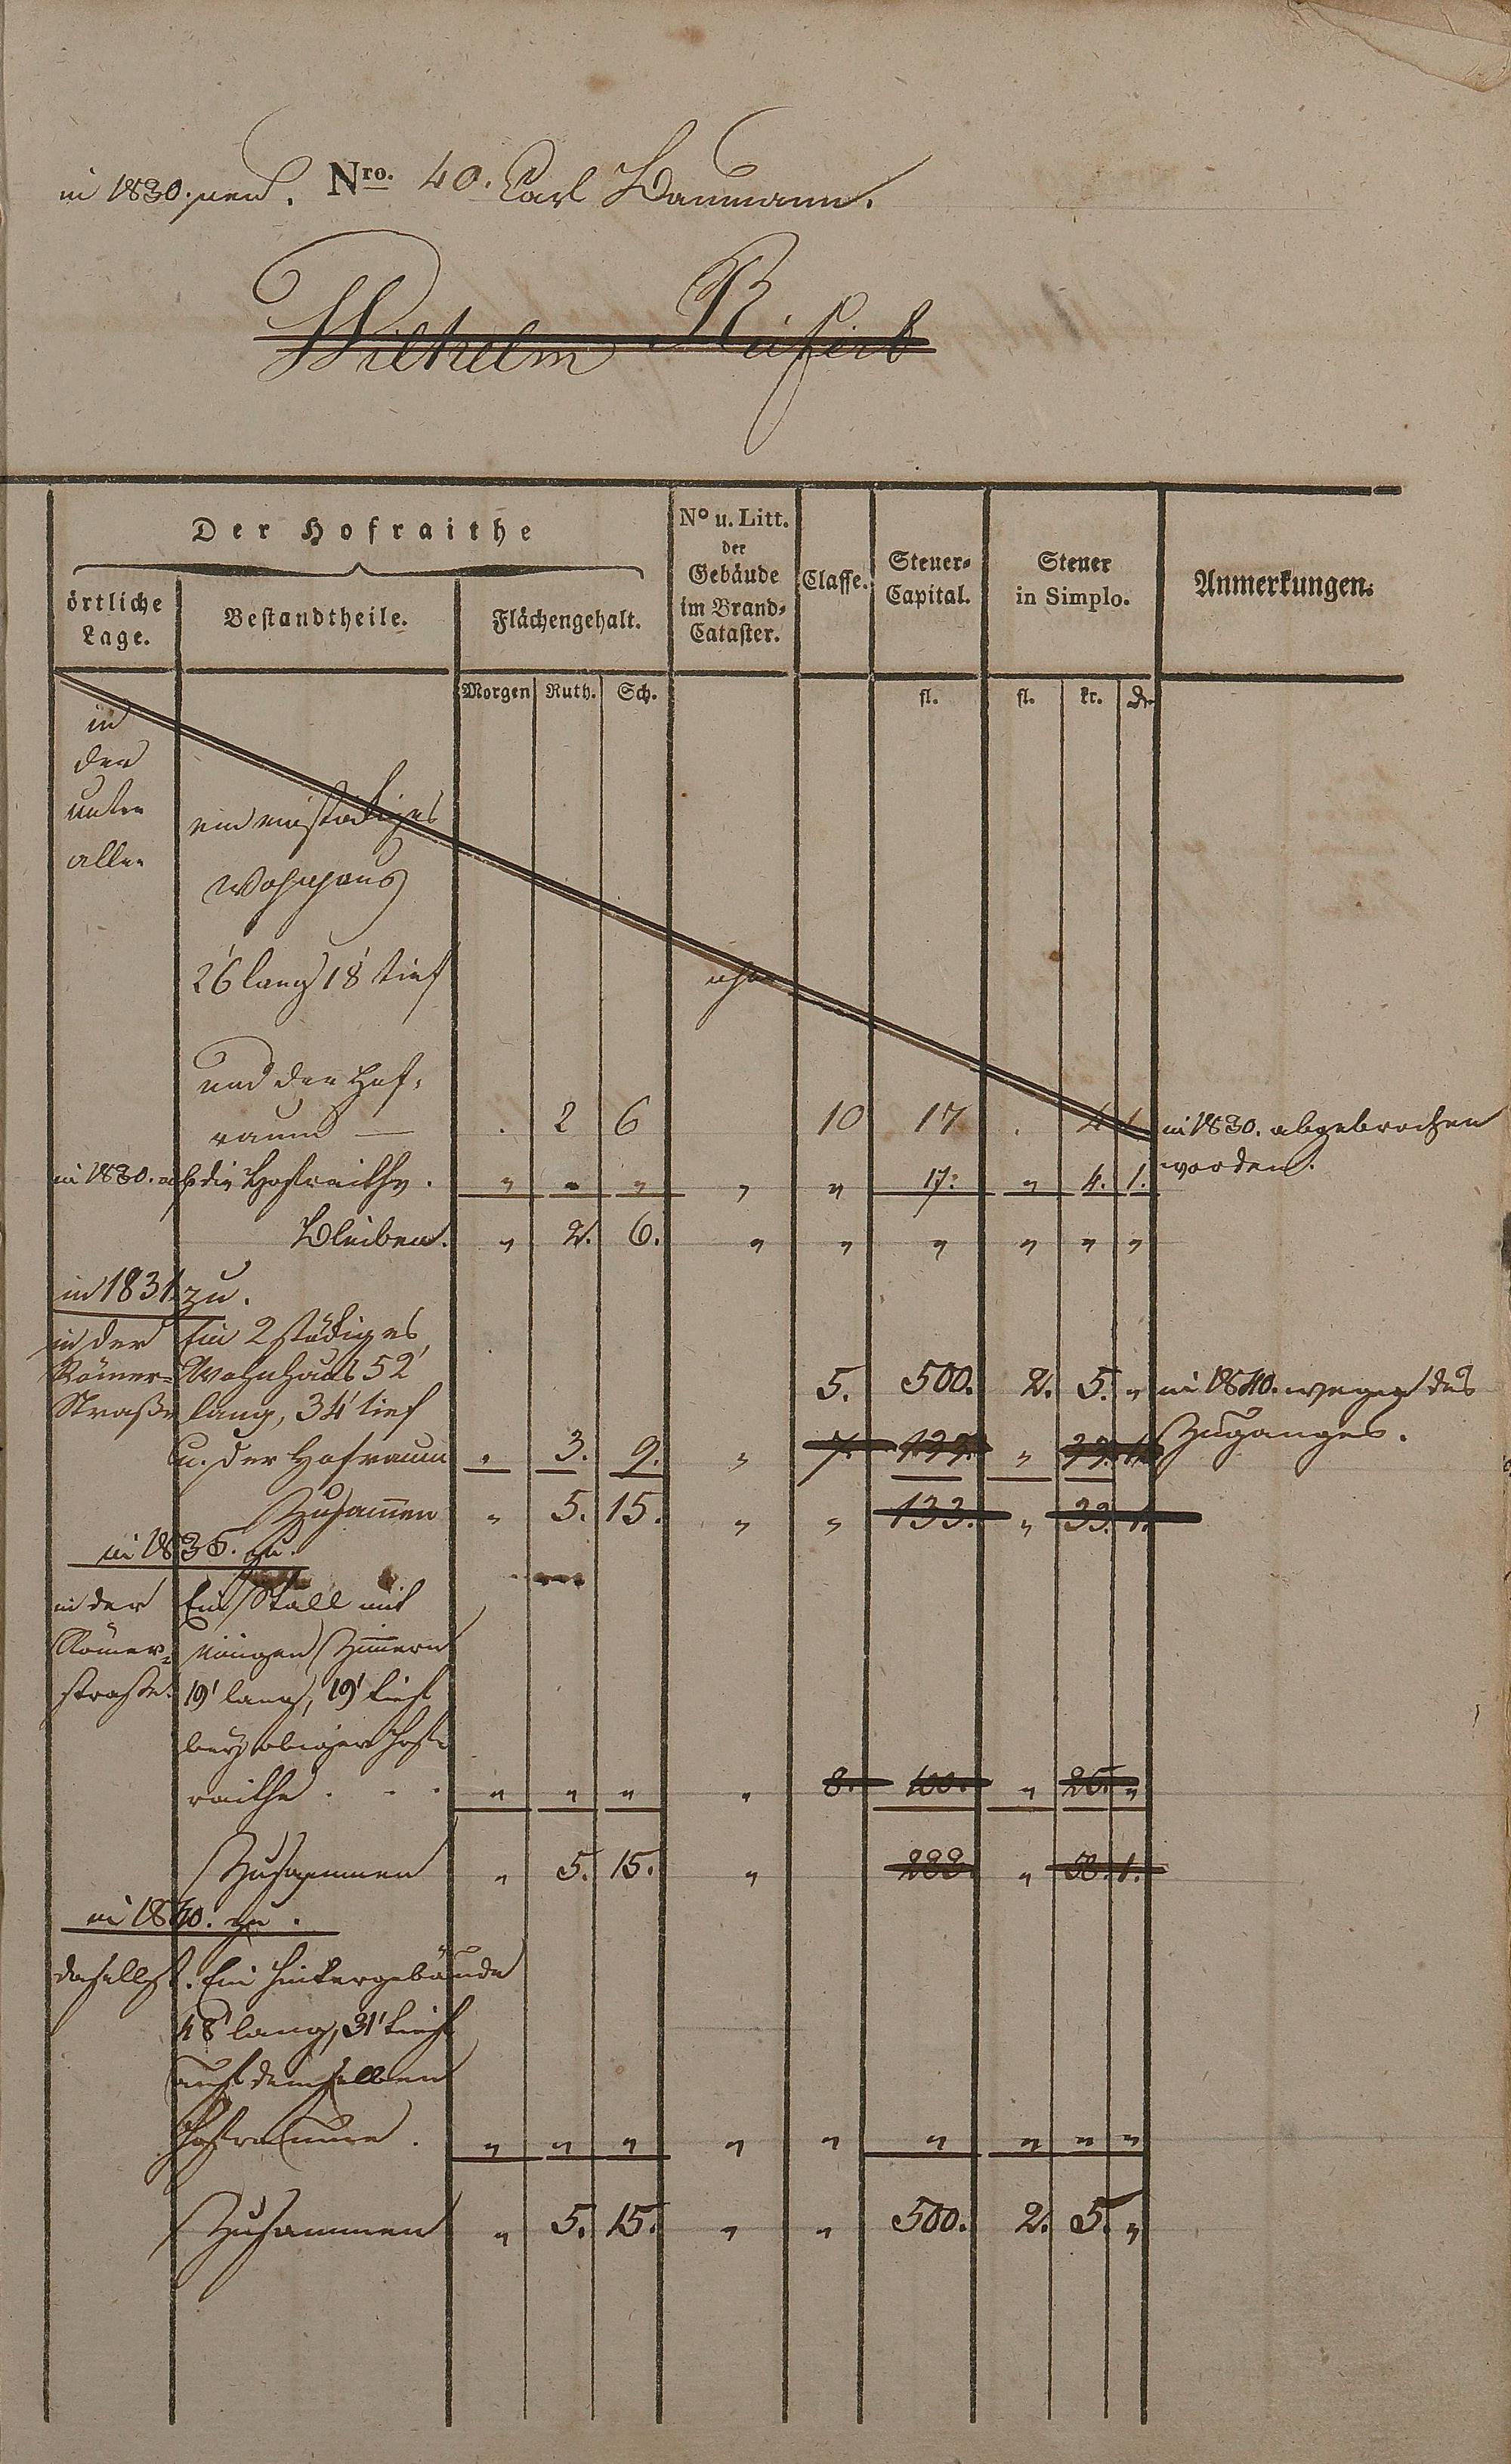 in 1830. neu. Nro. 40. Carl Baumann.
Wilhelm
Der Hofraithe
örtliche Lage.
Bestandtheile.
Flächengehalt.
No u. Litt. der Gebäude im Brand-Cataster.
Classe.
Steuer-Capital.
Steuer in Simplo.
Anmerkungen.
Morgen Ruth. Sch. fl. fl. kr.
in
der
untern
allee
ein einstöckiges
Wohnhaus
26' lang 18' tief
und der Hof-
raum — . 2 6 10 17 . 4 1 in 1830. abgebrochen
worden.
in 1830. ab die Hofraithe. " " " " " 17. " 4. 1.
Bleiben. " 2. 6. " " " " " "
in 1831 zu.
in der Ein 2 stöckiges
Römer- Wohnhaus 52'
Straße lang, 34' tief 5. 500. 2. 5. " in 1840. wegen des
Zuganges.
u. der Hofraum " 3. 9. " 7. 133. " 33. 1.
Zusammen " 5. 15. " " 133. " 33. 1.
in 1836. zu.
in der Ein Stall mit
Römer- einigen Zimmern
straße. 19' lang, 19' tief
bey obiger Hof-
raithe . . . " " " " 8. 100. " 25. "
Zusammen " 5. 15. " 233. " 58. 1.
in 1840. zu.
daselbst. Ein Hintergebäude
48' lang, 31' tief
auf demselben
Hofraume . " " " " " " " " "
Zusammen " 5. 15. " " 500. 2. 5. "